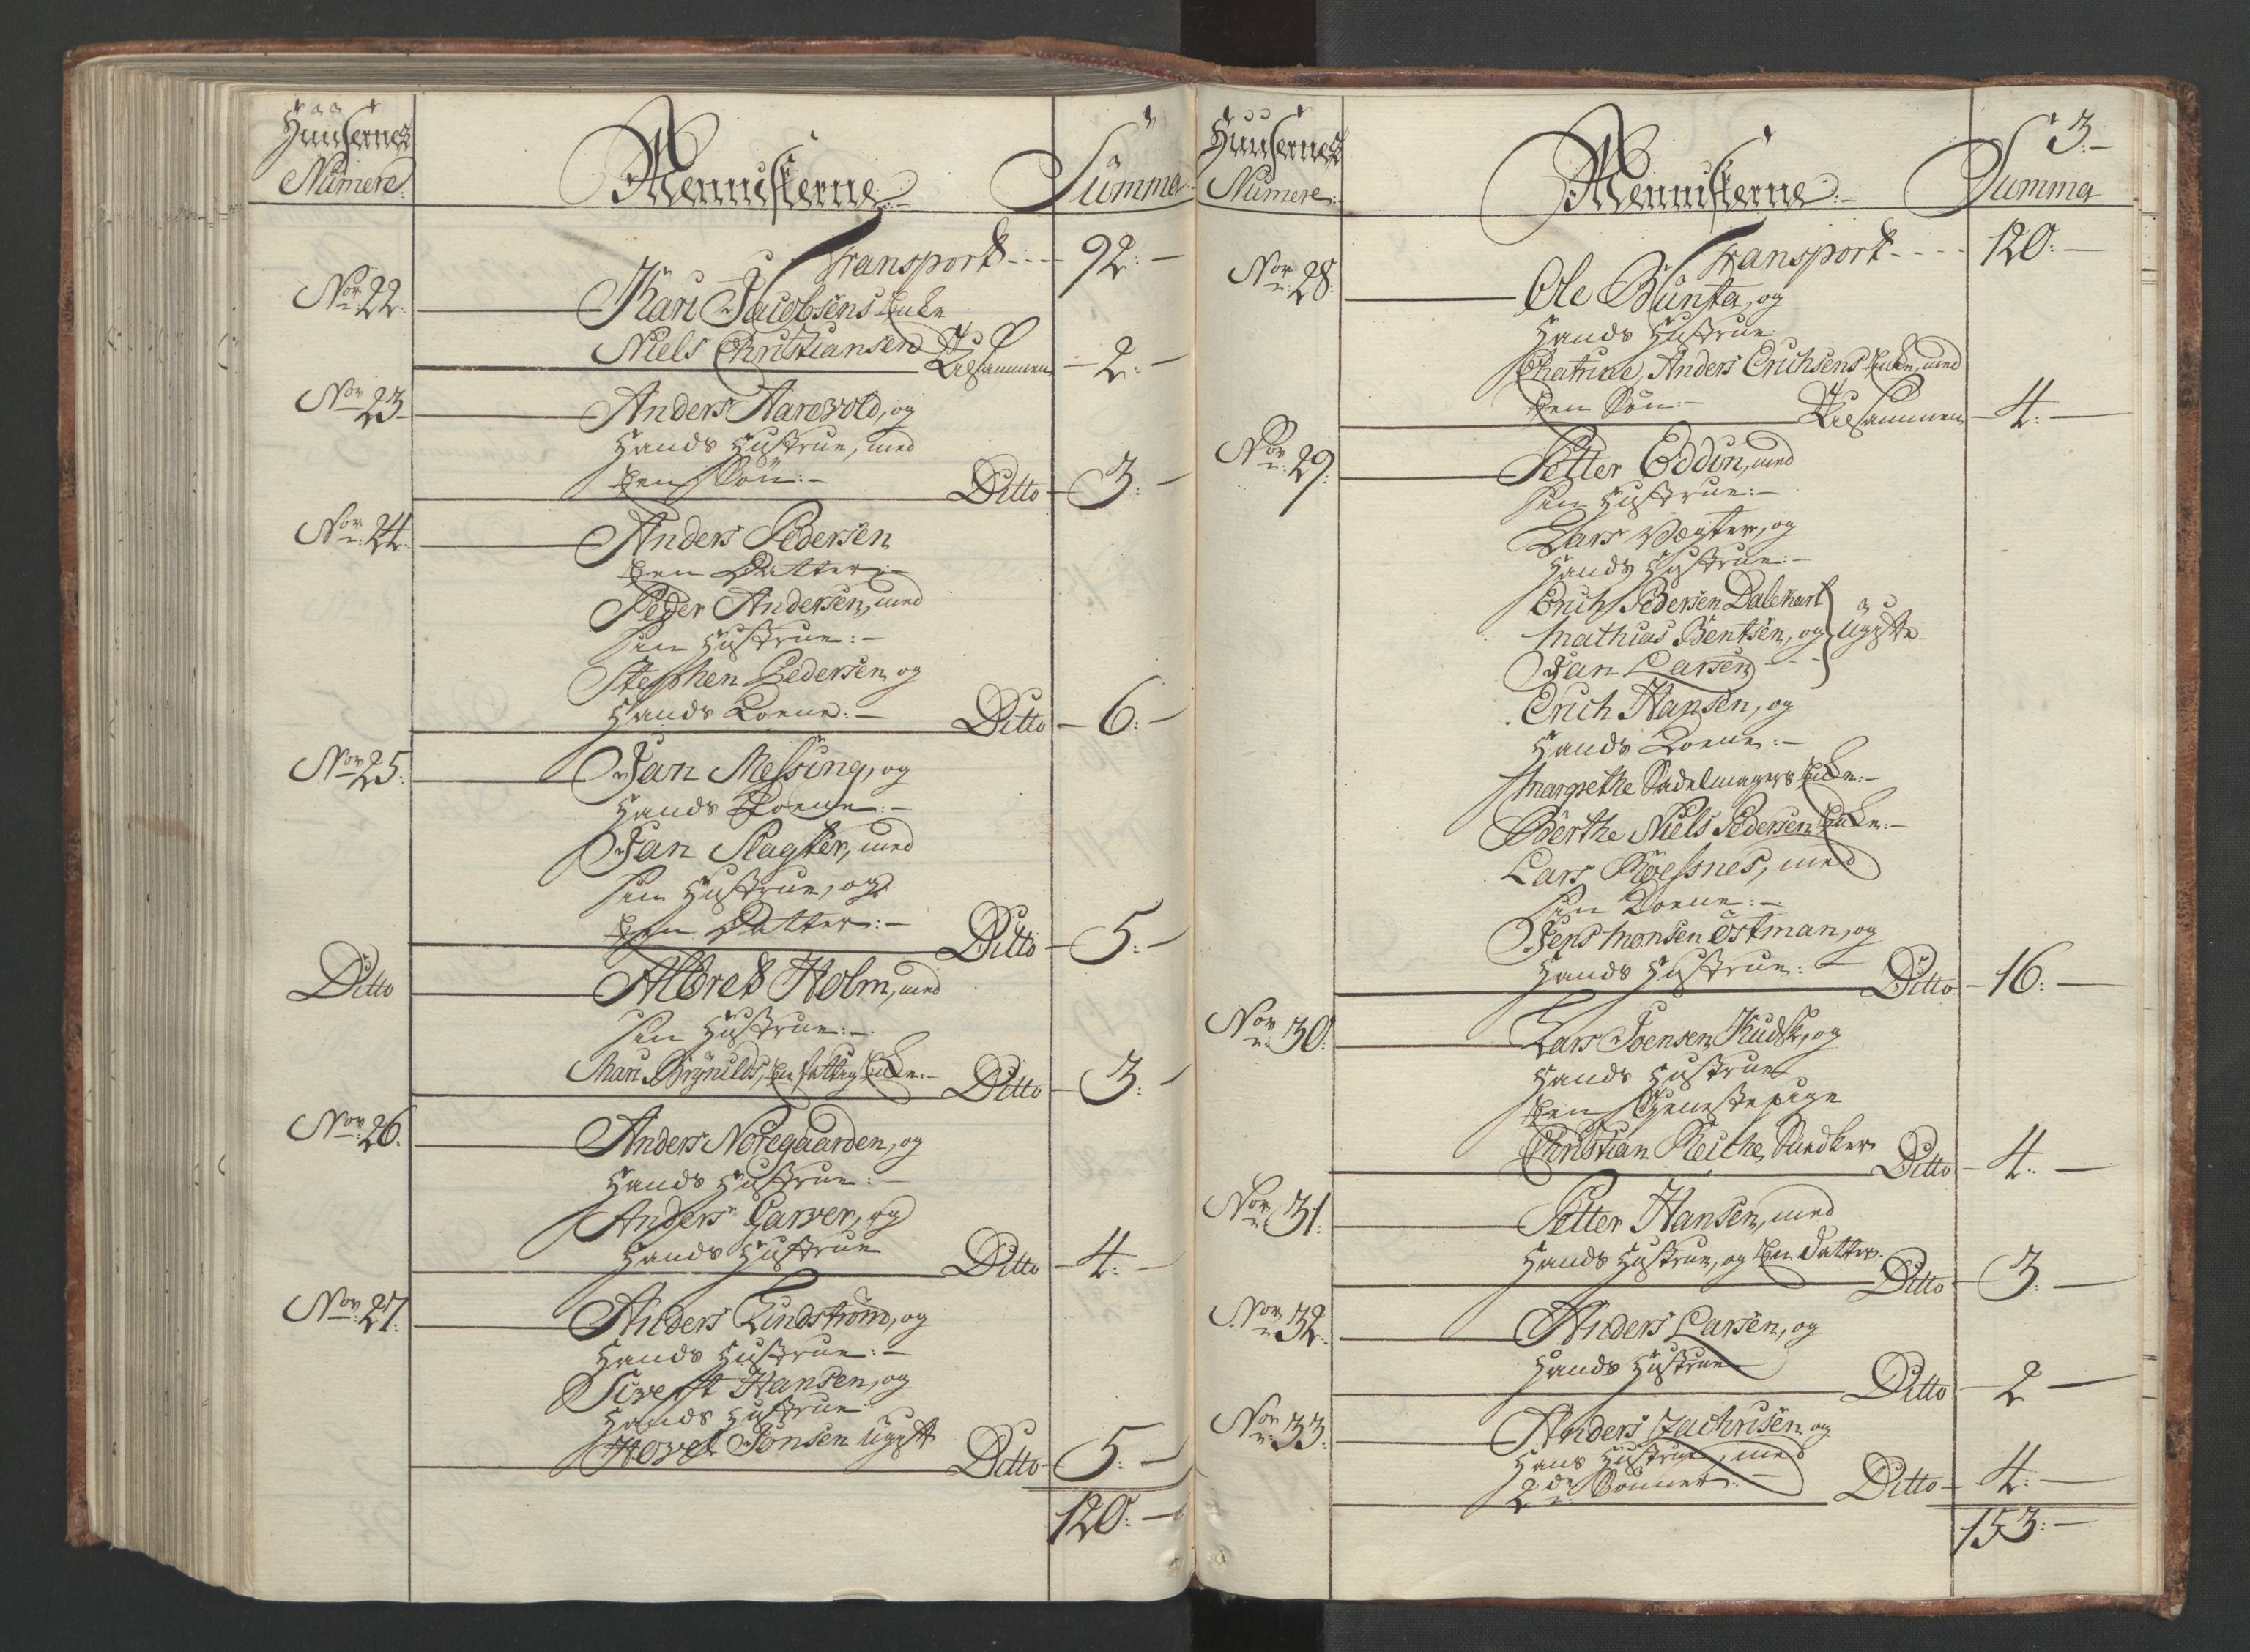 Huusernes
Numere
Menniskerne
Summa
Transport 92
No 22 Kari Jacobsens Enke
Niels Christiansen
Tilsammen 2
No 23 Anders Aarevold, og
Hands Hustrue, med
Een Søn
Ditto 3
No 24 Anders Pedersen
Een Datter
Peder Andersen, med
sin Hustrue
Stephen Pedersen og
Hands Kone
Ditto 6
No 25 Jan Messing, og
Hands Kone
Jan Slagter, med
sin Hustrue, og
Een Datter
Ditto 5
Ditto Albret Holm, med
sin Hustrue
Mari Brynilds, En fattig Enke
Ditto 3
No 26 Anders Noregaarden, og
Hands Hustrue
Anders Garver, og
Hands Hustrue
Ditto 4
No 27 Anders Lindstrøm, og
Hands Hustrue
Sivert Hansen, og
Hands Hustrue
Hovel Jonsen Ugift
Ditto 5
120
3
Huusernes
Numere
Menniskerne
Summa
Transport 120
No 28 Ole Bunta, og
Hands Hustrue
Chatrine, Anders Erichsens Enke, med
Een Søn
Tilsammen 4
No 29 Petter Eddin, med
sin Hustrue
Lars Vægter, og
Hands Hustrue
Erich Pedersen Dalekarl
Mathias Bentsen, og Ugifte
Jan Larsen
Erich Hansen, og
Hands Kone
Margrethe Sadelmagers Enke
Berthe Niels Pedersens Enke
Lars Røessnes, med
sin Kone
Jens Monsen Östman, og
Hands Hustrue
Ditto 16
No 30 Lars Joensen Kudsk, og
Hands Hustrue
Een Tieneste pige
Christian Reiche Snedker
Ditto 4
No 31 Petter Hansen, med
Hands Hustrue, og Een Datter
Ditto 3
No 32 Anders Larsen, og
Hands Hustrue
Ditto 2
No 33 Anders Zachrisen og
Hans Hustrue, med
2de Sønner
Ditto 4
153